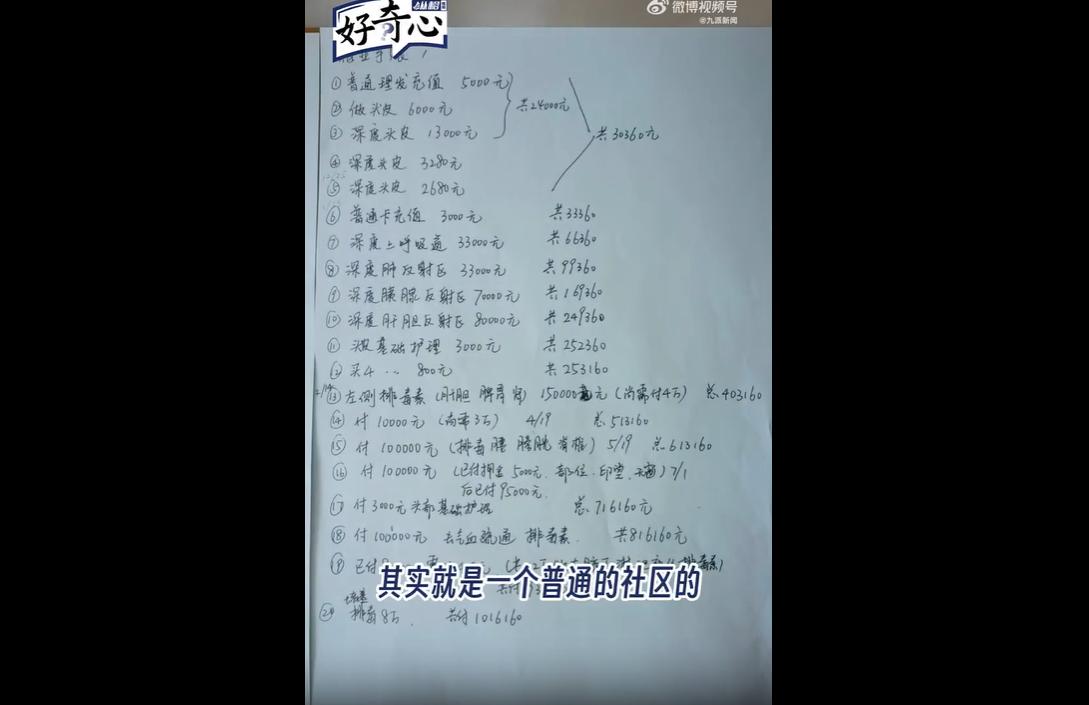 好奇心
微博视频号
@九派新闻
① 普通理发充值 5000元
② 做头皮 6000元 共24000元
③ 深度头皮 13000元 共30360元
④ 深度头皮 3280元
⑤ 深度头皮 2680元
⑥ 普通卡充值 3000元 共33360
⑦ 深度上呼吸道 33000元 共66360
⑧ 深度肺反射区 33000元 共99360
⑨ 深度胰腺反射区 70000元 共169360
⑩ 深度肝胆反射区 80000元 共249360
⑪ 头皮基础护理 3000元 共252360
⑫ 买4 … 800元 共253160
⑬ 左侧排毒素 (肝胆 脾胃肾) 150000元 (尚需付4万) 总403160
⑭ 付 10000元 (尚需3万) 4/19 总513160
⑮ 付 100000元 (排毒 膀胱 脊椎) 5/19 总613160
⑯ 付 100000元 (已付押金5000元, 部位. 印堂. ) 7/1
后已付95000元.
⑰ 付3000元头部基础护理 总716160元
⑱ 付100000元 去气血疏通 排毒素. 共816160元
⑲ 已付 排毒素)
其实就是一个普通的社区的
⑳ 排毒8万. 共付1016160